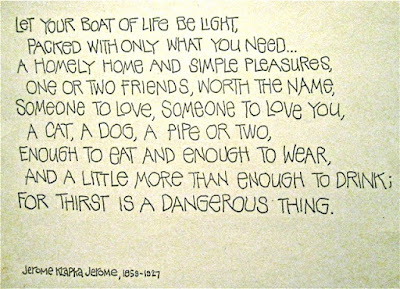 LET YOUR BOAT OF LIFE BE LIGHT,
PACKED WITH ONLY WHAT YOU NEED...
A HOMELY HOME AND SIMPLE PLEASURES,
ONE OR TWO FRIENDS, WORTH THE NAME,
SOMEONE TO LOVE, SOMEONE TO LOVE YOU,
A CAT, A DOG, A PIPE OR TWO,
ENOUGH TO EAT AND ENOUGH TO WEAR,
AND A LITTLE MORE THAN ENOUGH TO DRINK;
FOR THIRST IS A DANGEROUS THING.
Jerome Klapka Jerome, 1859-1927